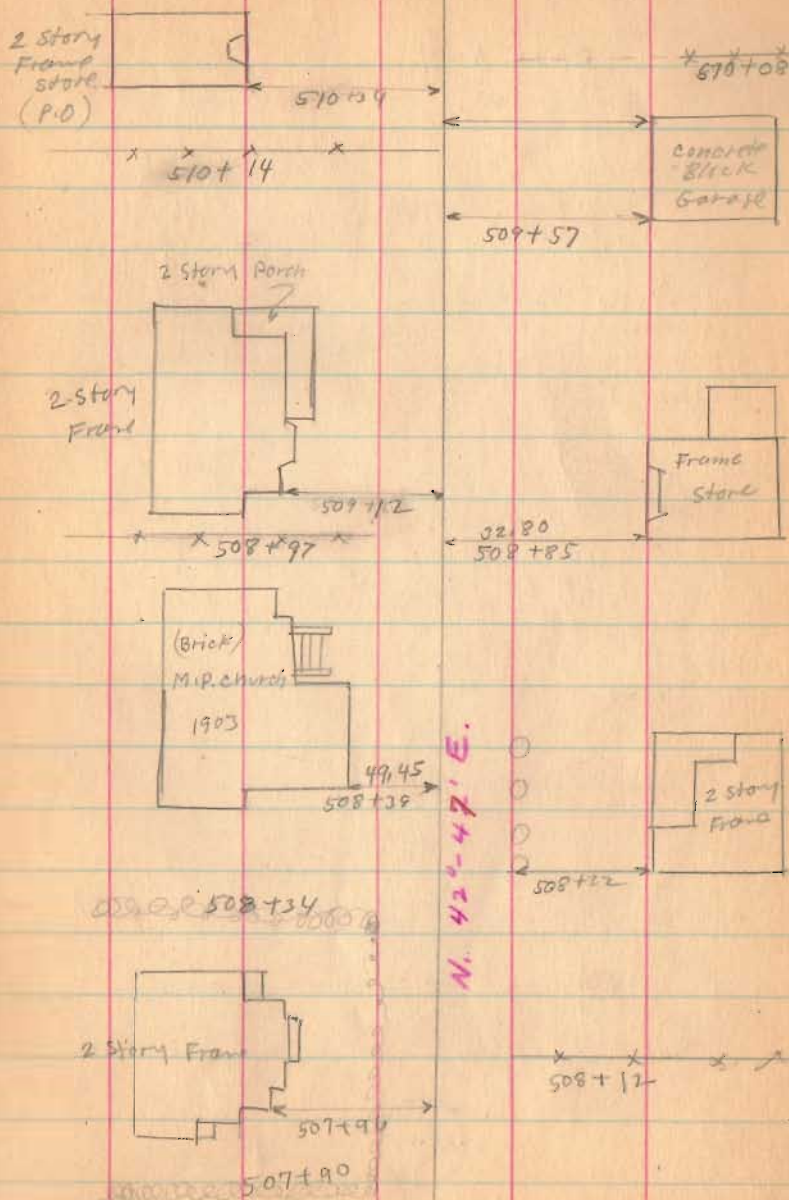 2 Story
Frame
Store
(P.O)
510+
510+14
670+08
Concrete
Block
Garage
509+57
2 Story Porch
2-Story
Frame
509+12
508+97
Frame
Store
32.80
508+85
(Brick)
M.P. Church
1903
49.45
508+39
N. 42°-47' E.
2 Story
Frame
508+22
508+34
2 Story Frame
508+12
507+9
507+90